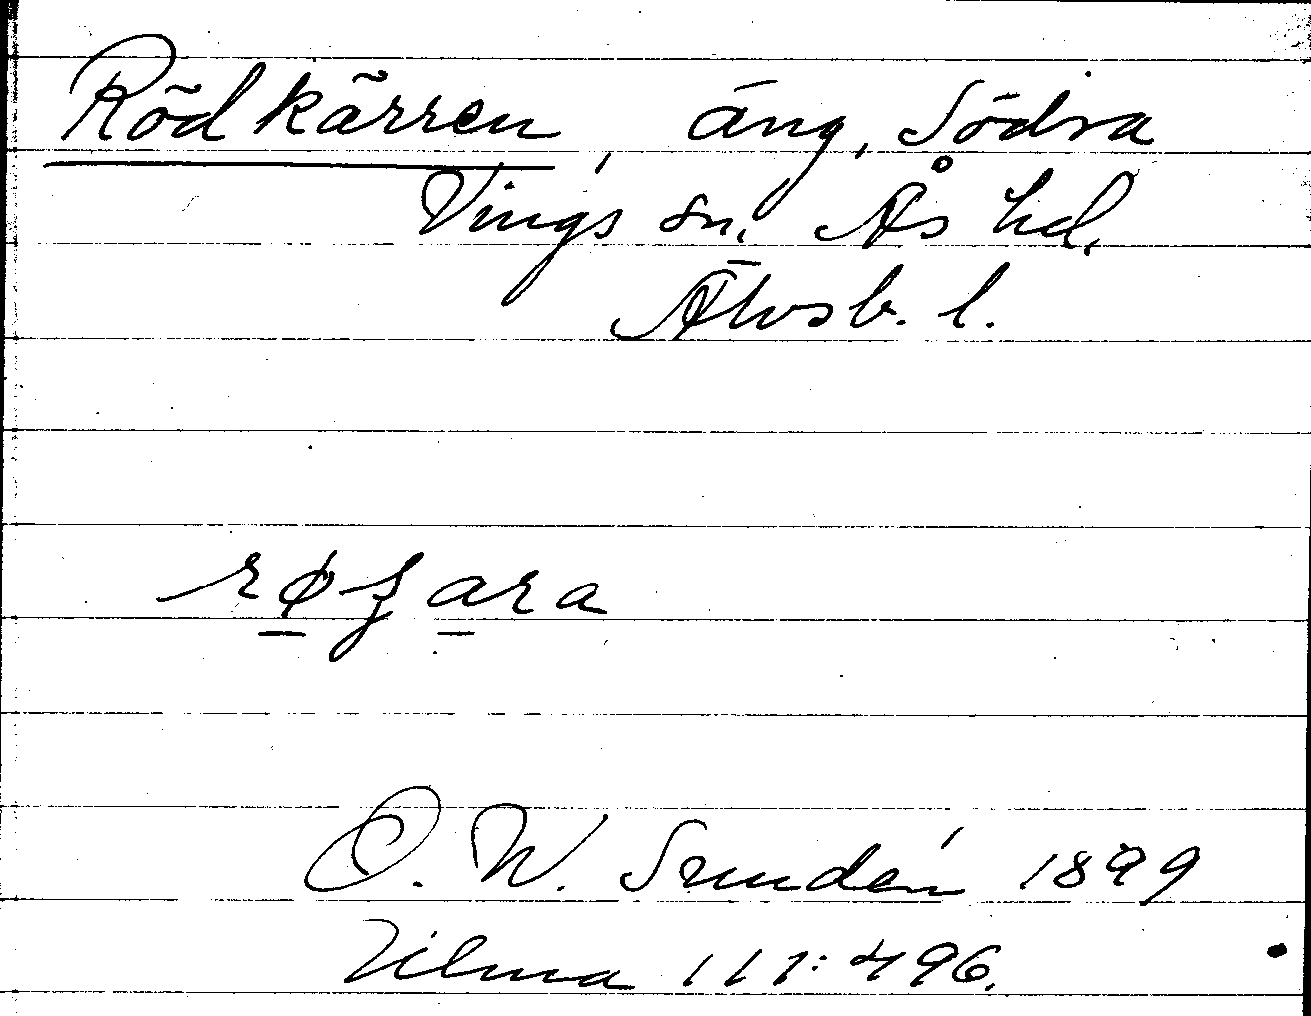 Rödkärren, äng, Södra
Vings sn. Ås hd.
Älvsb. l.
O. W. Sundén 1899
Ulma 111:496.